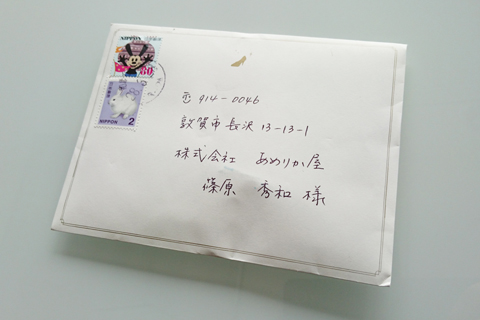 NIPPON
80
2
NIPPON
〒914-0046
敦賀市長沢13-13-1
株式会社 あめりか屋
篠原 秀和 様